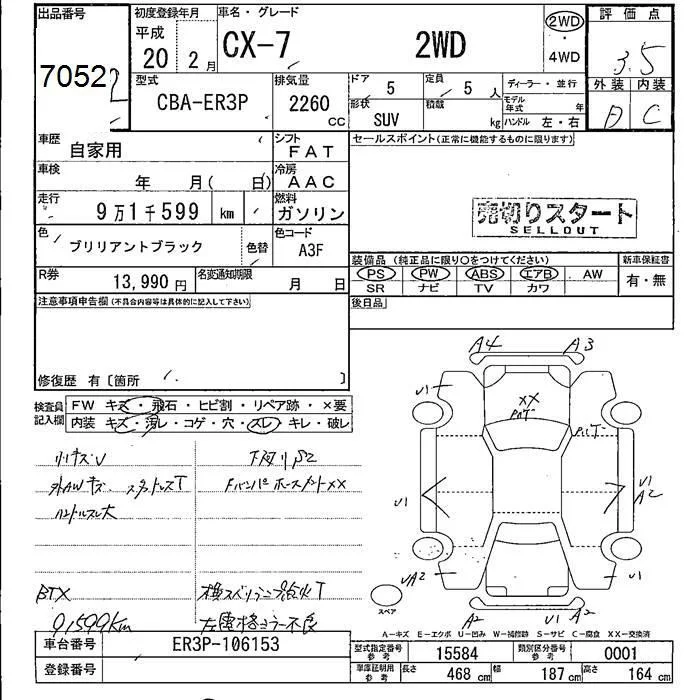 出品番号 初度登録年月 車名・グレード 2WD 評価点
7052 平成 20 2月 CX-7 2WD ・ 4WD 3.5
型式 CBA-ER3P 排気量 2260 CC ドア 5 定員 5人 ディーラー・並行 外装 内装
形状 SUV 積載 kg モデル年式 年 ハンドル 左・右 D C
車歴 自家用 シフト FAT セールスポイント(正常に機能するものに限ります)
車検 年 月( 日) 冷房 AAC
走行 9万1千599 km 燃料 ガソリン 売切りスタート
SELLOUT
色 ブリリアントブラック 色替 色コード A3F
装備品(純正品に限り○をつけてください) 新車保証書
R券 13,990円 名変通知期限 月 日 PS PW ABS エアB AW 有・無
SR ナビ TV カワ
注意事項申告欄(不具合内容等は具体的に記入して下さい) 後日品
修復歴 有〔箇所 〕
検査員記入欄 FW キズ・飛石・ヒビ割・リペア跡・×要
内装 キズ・汚レ・コゲ・穴・スレ・キレ・破レ
A4 A3
U1 XX
U1 U1
A2
UA2 U1
スペア A2 U1 A2
小キズU
外AWキズ. スタッドレスT
ハンドルスレ大
FバンパーホースメントXX
BTX
91,599km
A-キズ E-エクボ U-凹み W-補修跡 S-サビ C-腐食 XX-交換済
車台番号 ER3P-106153 型式指定番号 参考 15584 類別区分番号 参考 0001
登録番号 車庫証明用 参考 長さ 468 cm 幅 187 cm 高さ 164 cm